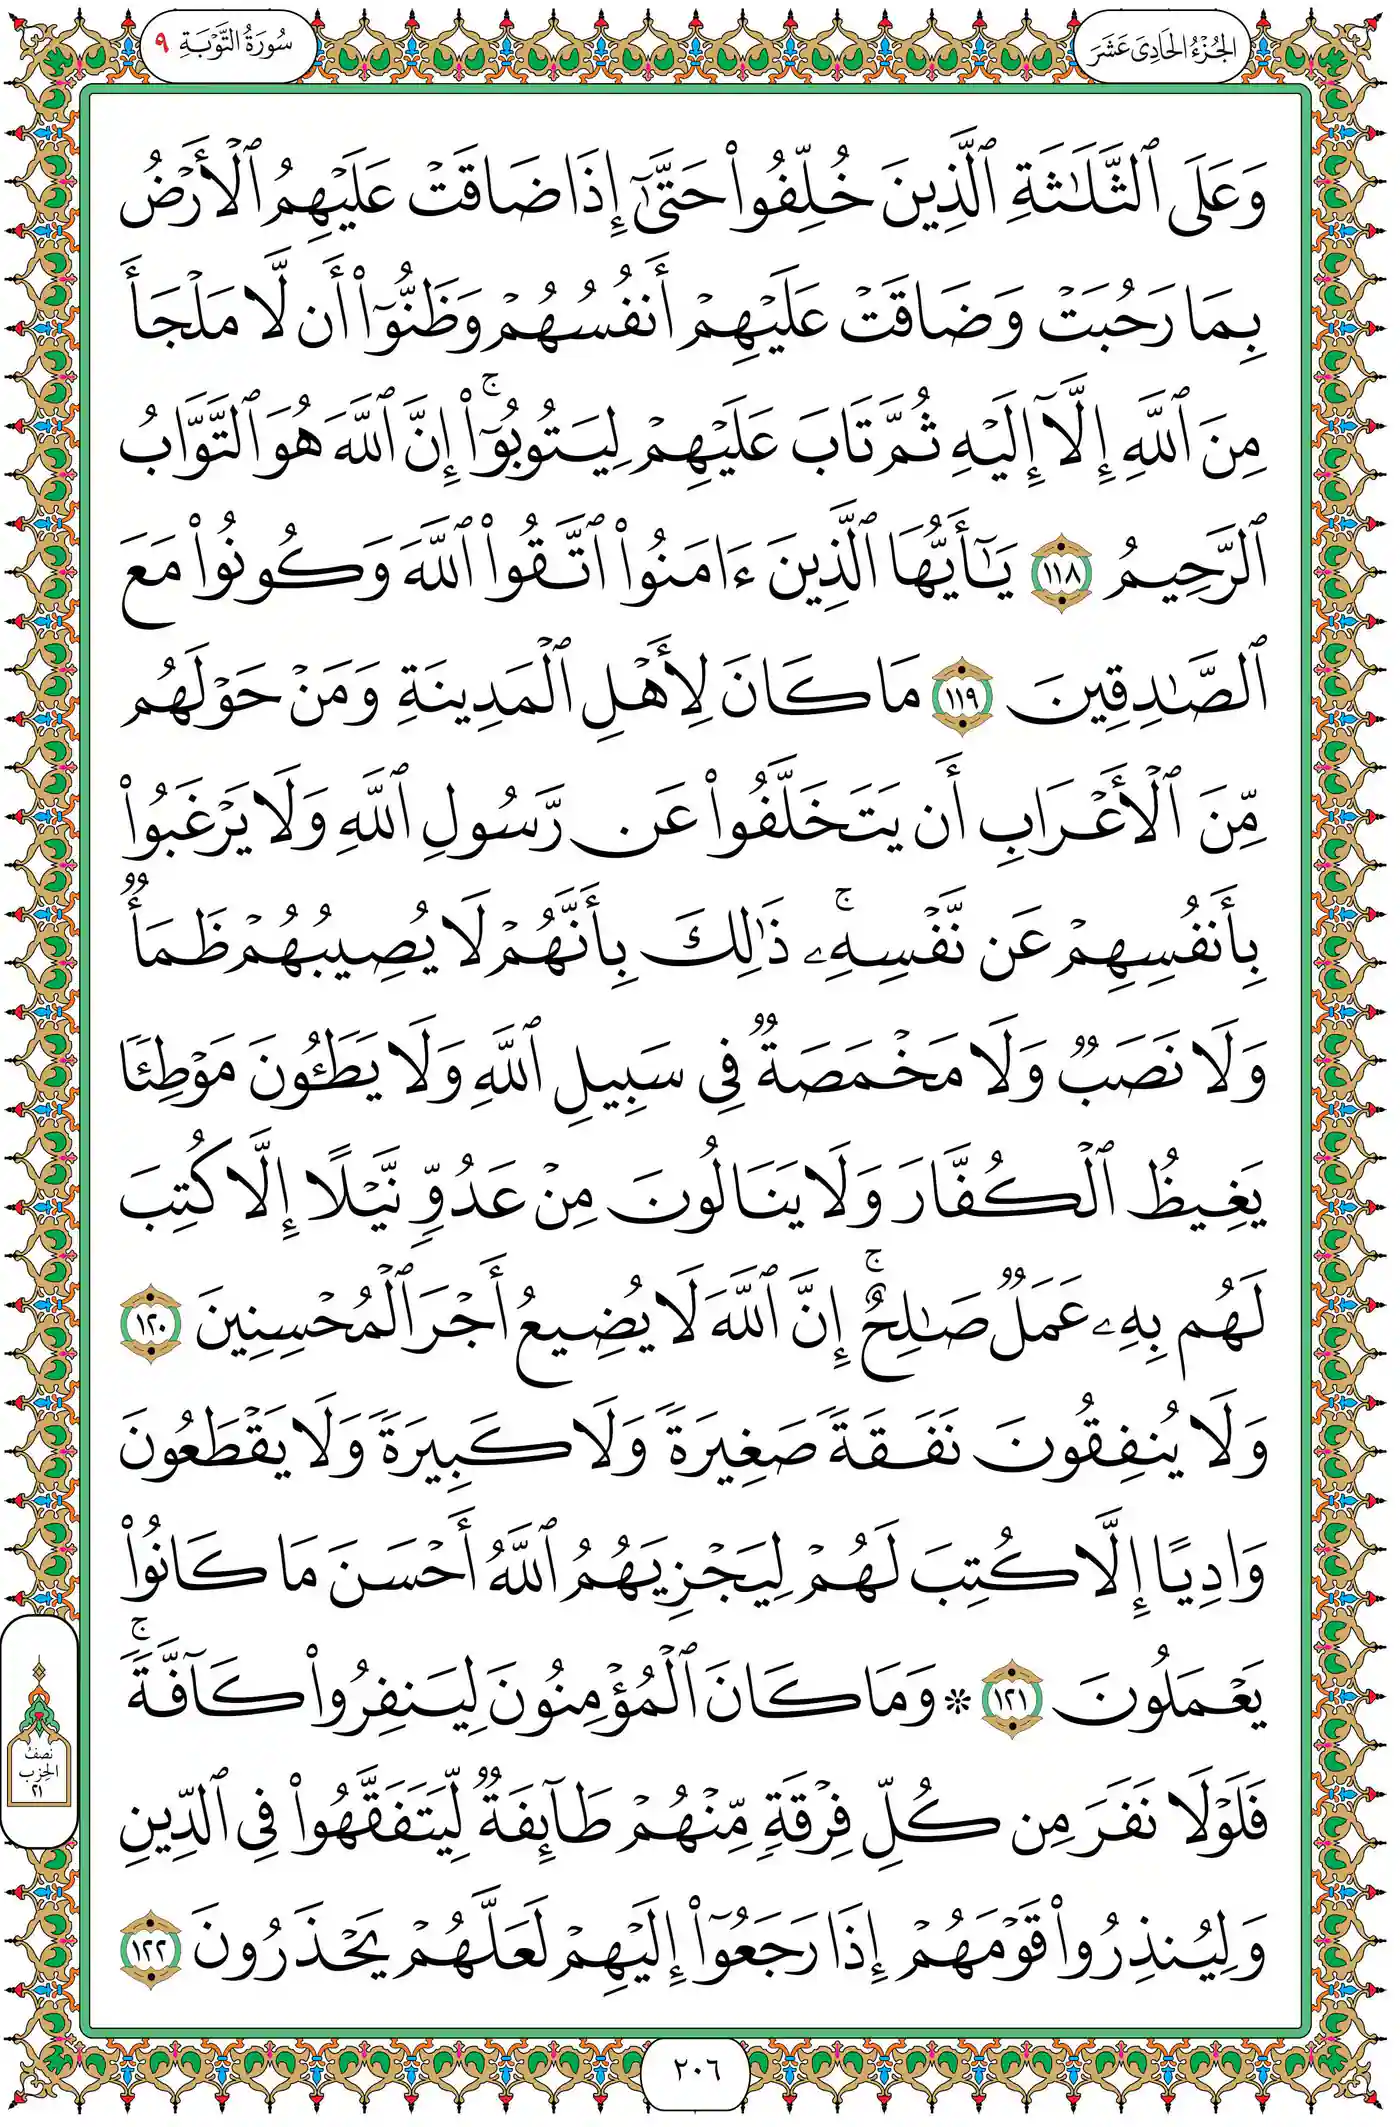 الجُزْءُ الحَادِي عَشَرَ
سُورَةُ التَّوْبَةِ ٩
وَعَلَى ٱلثَّلَٰثَةِ ٱلَّذِينَ خُلِّفُوا۟ حَتَّىٰٓ إِذَا ضَاقَتْ عَلَيْهِمُ ٱلْأَرْضُ
بِمَا رَحُبَتْ وَضَاقَتْ عَلَيْهِمْ أَنفُسُهُمْ وَظَنُّوٓا۟ أَن لَّا مَلْجَأَ
مِنَ ٱللَّهِ إِلَّآ إِلَيْهِ ثُمَّ تَابَ عَلَيْهِمْ لِيَتُوبُوٓا۟ ۚ إِنَّ ٱللَّهَ هُوَ ٱلتَّوَّابُ
ٱلرَّحِيمُ ١١٨ يَٰٓأَيُّهَا ٱلَّذِينَ ءَامَنُوا۟ ٱتَّقُوا۟ ٱللَّهَ وَكُونُوا۟ مَعَ
ٱلصَّٰدِقِينَ ١١٩ مَا كَانَ لِأَهْلِ ٱلْمَدِينَةِ وَمَنْ حَوْلَهُم
مِّنَ ٱلْأَعْرَابِ أَن يَتَخَلَّفُوا۟ عَن رَّسُولِ ٱللَّهِ وَلَا يَرْغَبُوا۟
بِأَنفُسِهِمْ عَن نَّفْسِهِۦ ۚ ذَٰلِكَ بِأَنَّهُمْ لَا يُصِيبُهُمْ ظَمَأٌ
وَلَا نَصَبٌ وَلَا مَخْمَصَةٌ فِى سَبِيلِ ٱللَّهِ وَلَا يَطَـُٔونَ مَوْطِئًا
يَغِيظُ ٱلْكُفَّارَ وَلَا يَنَالُونَ مِنْ عَدُوٍّ نَّيْلًا إِلَّا كُتِبَ
لَهُم بِهِۦ عَمَلٌ صَٰلِحٌ ۚ إِنَّ ٱللَّهَ لَا يُضِيعُ أَجْرَ ٱلْمُحْسِنِينَ ١٢٠
وَلَا يُنفِقُونَ نَفَقَةً صَغِيرَةً وَلَا كَبِيرَةً وَلَا يَقْطَعُونَ
وَادِيًا إِلَّا كُتِبَ لَهُمْ لِيَجْزِيَهُمُ ٱللَّهُ أَحْسَنَ مَا كَانُوا۟
يَعْمَلُونَ ١٢١ * وَمَا كَانَ ٱلْمُؤْمِنُونَ لِيَنفِرُوا۟ كَآفَّةً ۚ
فَلَوْلَا نَفَرَ مِن كُلِّ فِرْقَةٍ مِّنْهُمْ طَآئِفَةٌ لِّيَتَفَقَّهُوا۟ فِى ٱلدِّينِ
وَلِيُنذِرُوا۟ قَوْمَهُمْ إِذَا رَجَعُوٓا۟ إِلَيْهِمْ لَعَلَّهُمْ يَحْذَرُونَ ١٢٢
نصفُ
الحِزب
٢١
٢٠٦